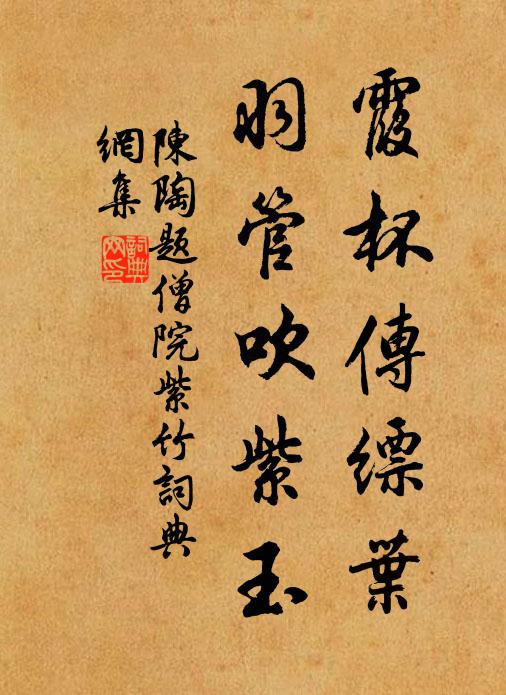 霞杯傳縹葉
羽管吹紫玉
陳陶題僧院紫竹詞典
網集
詞典網印